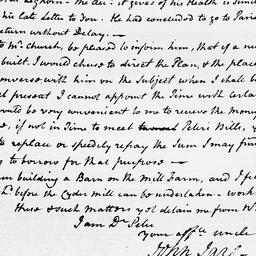 Leghorn — the acct: it gives of his Health is
his late letter to You. He had concluded to go to Paris
return without Delay. —
to Mr. church, be pleased to inform him, that if a
built. I would chuse to direct the Plan, & the place
converse with him on the Subject when I shall be
at present I cannot appoint the Time with certain
would be very convenient to me to receive the money
if not in Time to meet Peters Bills, y
to replace or speedily repay the Sum I may find
to borrow for that purpose —
am building a Barn on the Mill Farm, and I
before the Cyder Mill can be undertaken — work
these & such matters yet detain me from
I am Dr. Peter
your affte. uncle
John Jay —